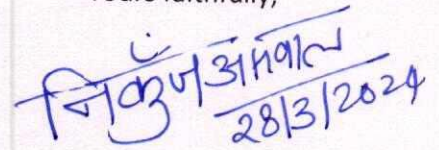 faithfully,
निकुँज अग्रवाल
28/3/2024